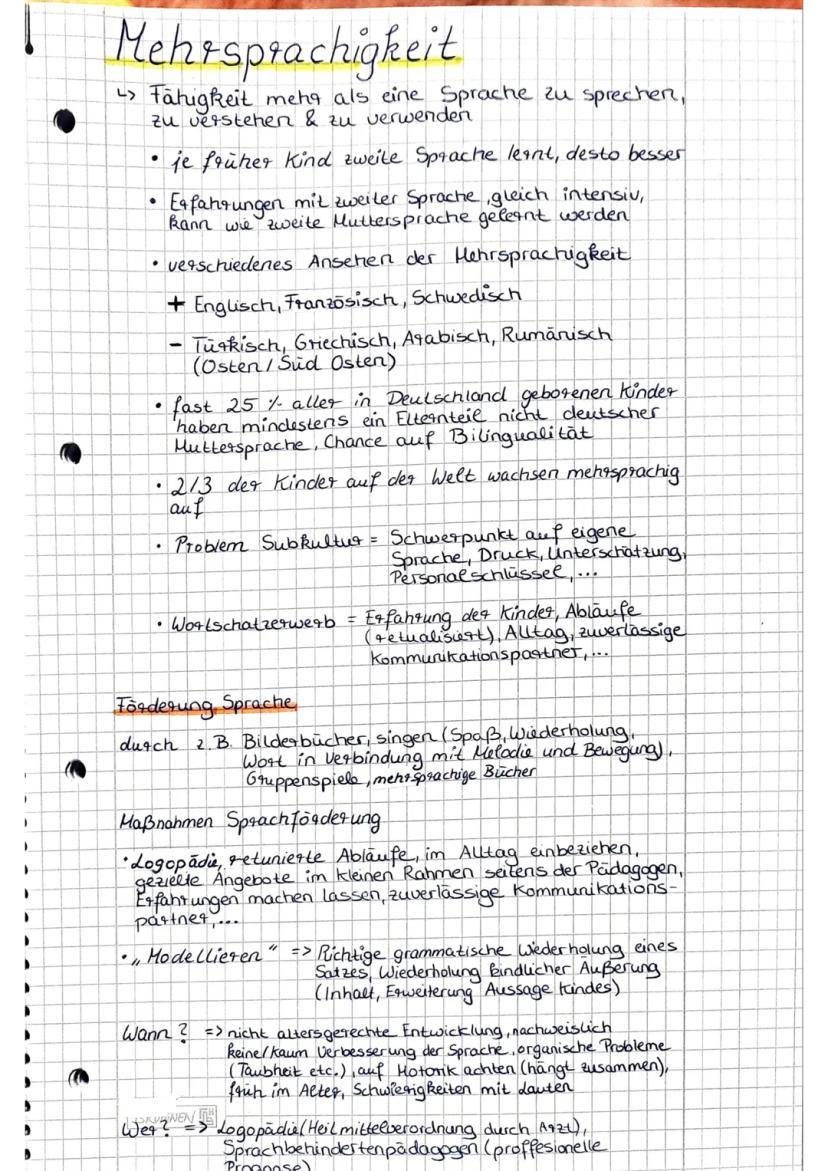 Mehrsprachigkeit
↳ Fähigkeit mehr als eine Sprache zu sprechen,
zu verstehen & zu verwenden
• je früher Kind zweite Sprache lernt, desto besser
• Erfahrungen mit zweiter Sprache, gleich intensiv,
kann wie zweite Muttersprache gelernt werden
• verschiedenes Ansehen der Mehrsprachigkeit
+ Englisch, Französisch, Schwedisch
- Türkisch, Griechisch, Arabisch, Rumänisch
(Osten / Süd Osten)
• fast 25 % aller in Deutschland geborenen Kinder
haben mindestens ein Elternteil nicht deutscher
Muttersprache, Chance auf Bilingualität
• 2/3 der Kinder auf der Welt wachsen mehrsprachig
auf
• Problem Subkultur = Schwerpunkt auf eigene
Sprache, Druck, Unterschätzung,
Personalschlüssel, ...
• Wortschatzerwerb = Erfahrung der Kinder, Abläufe
(retualisiert), Alltag, zuverlässige
Kommunikationspartner, ...
Förderung Sprache
durch z.B. Bilderbücher, singen (Spaß, Wiederholung,
Wort in Verbindung mit Melodie und Bewegung),
Gruppenspiele, mehrsprachige Bücher
Maßnahmen Sprachförderung
• Logopädie, retunierte Abläufe, im Alltag einbeziehen,
gezielte Angebote im kleinen Rahmen seitens der Pädagogen,
Erfahrungen machen lassen, zuverlässige Kommunikations-
partner, ...
• „Modellieren" => Richtige grammatische Wiederholung eines
Satzes, Wiederholung kindlicher Äußerung
(Inhalt, Erweiterung Aussage Kindes)
Wann? => nicht altersgerechte Entwicklung, nachweislich
keine/kaum Verbesserung der Sprache, organische Probleme
(Taubheit etc.), auf Motorik achten (hängt zusammen),
früh im Alter, Schwierigkeiten mit Lauten
Wer? => Logopädie (Heilmittelverordnung durch Arzt),
Sprachbehindertenpädagogen (proffesionelle
Prognose)